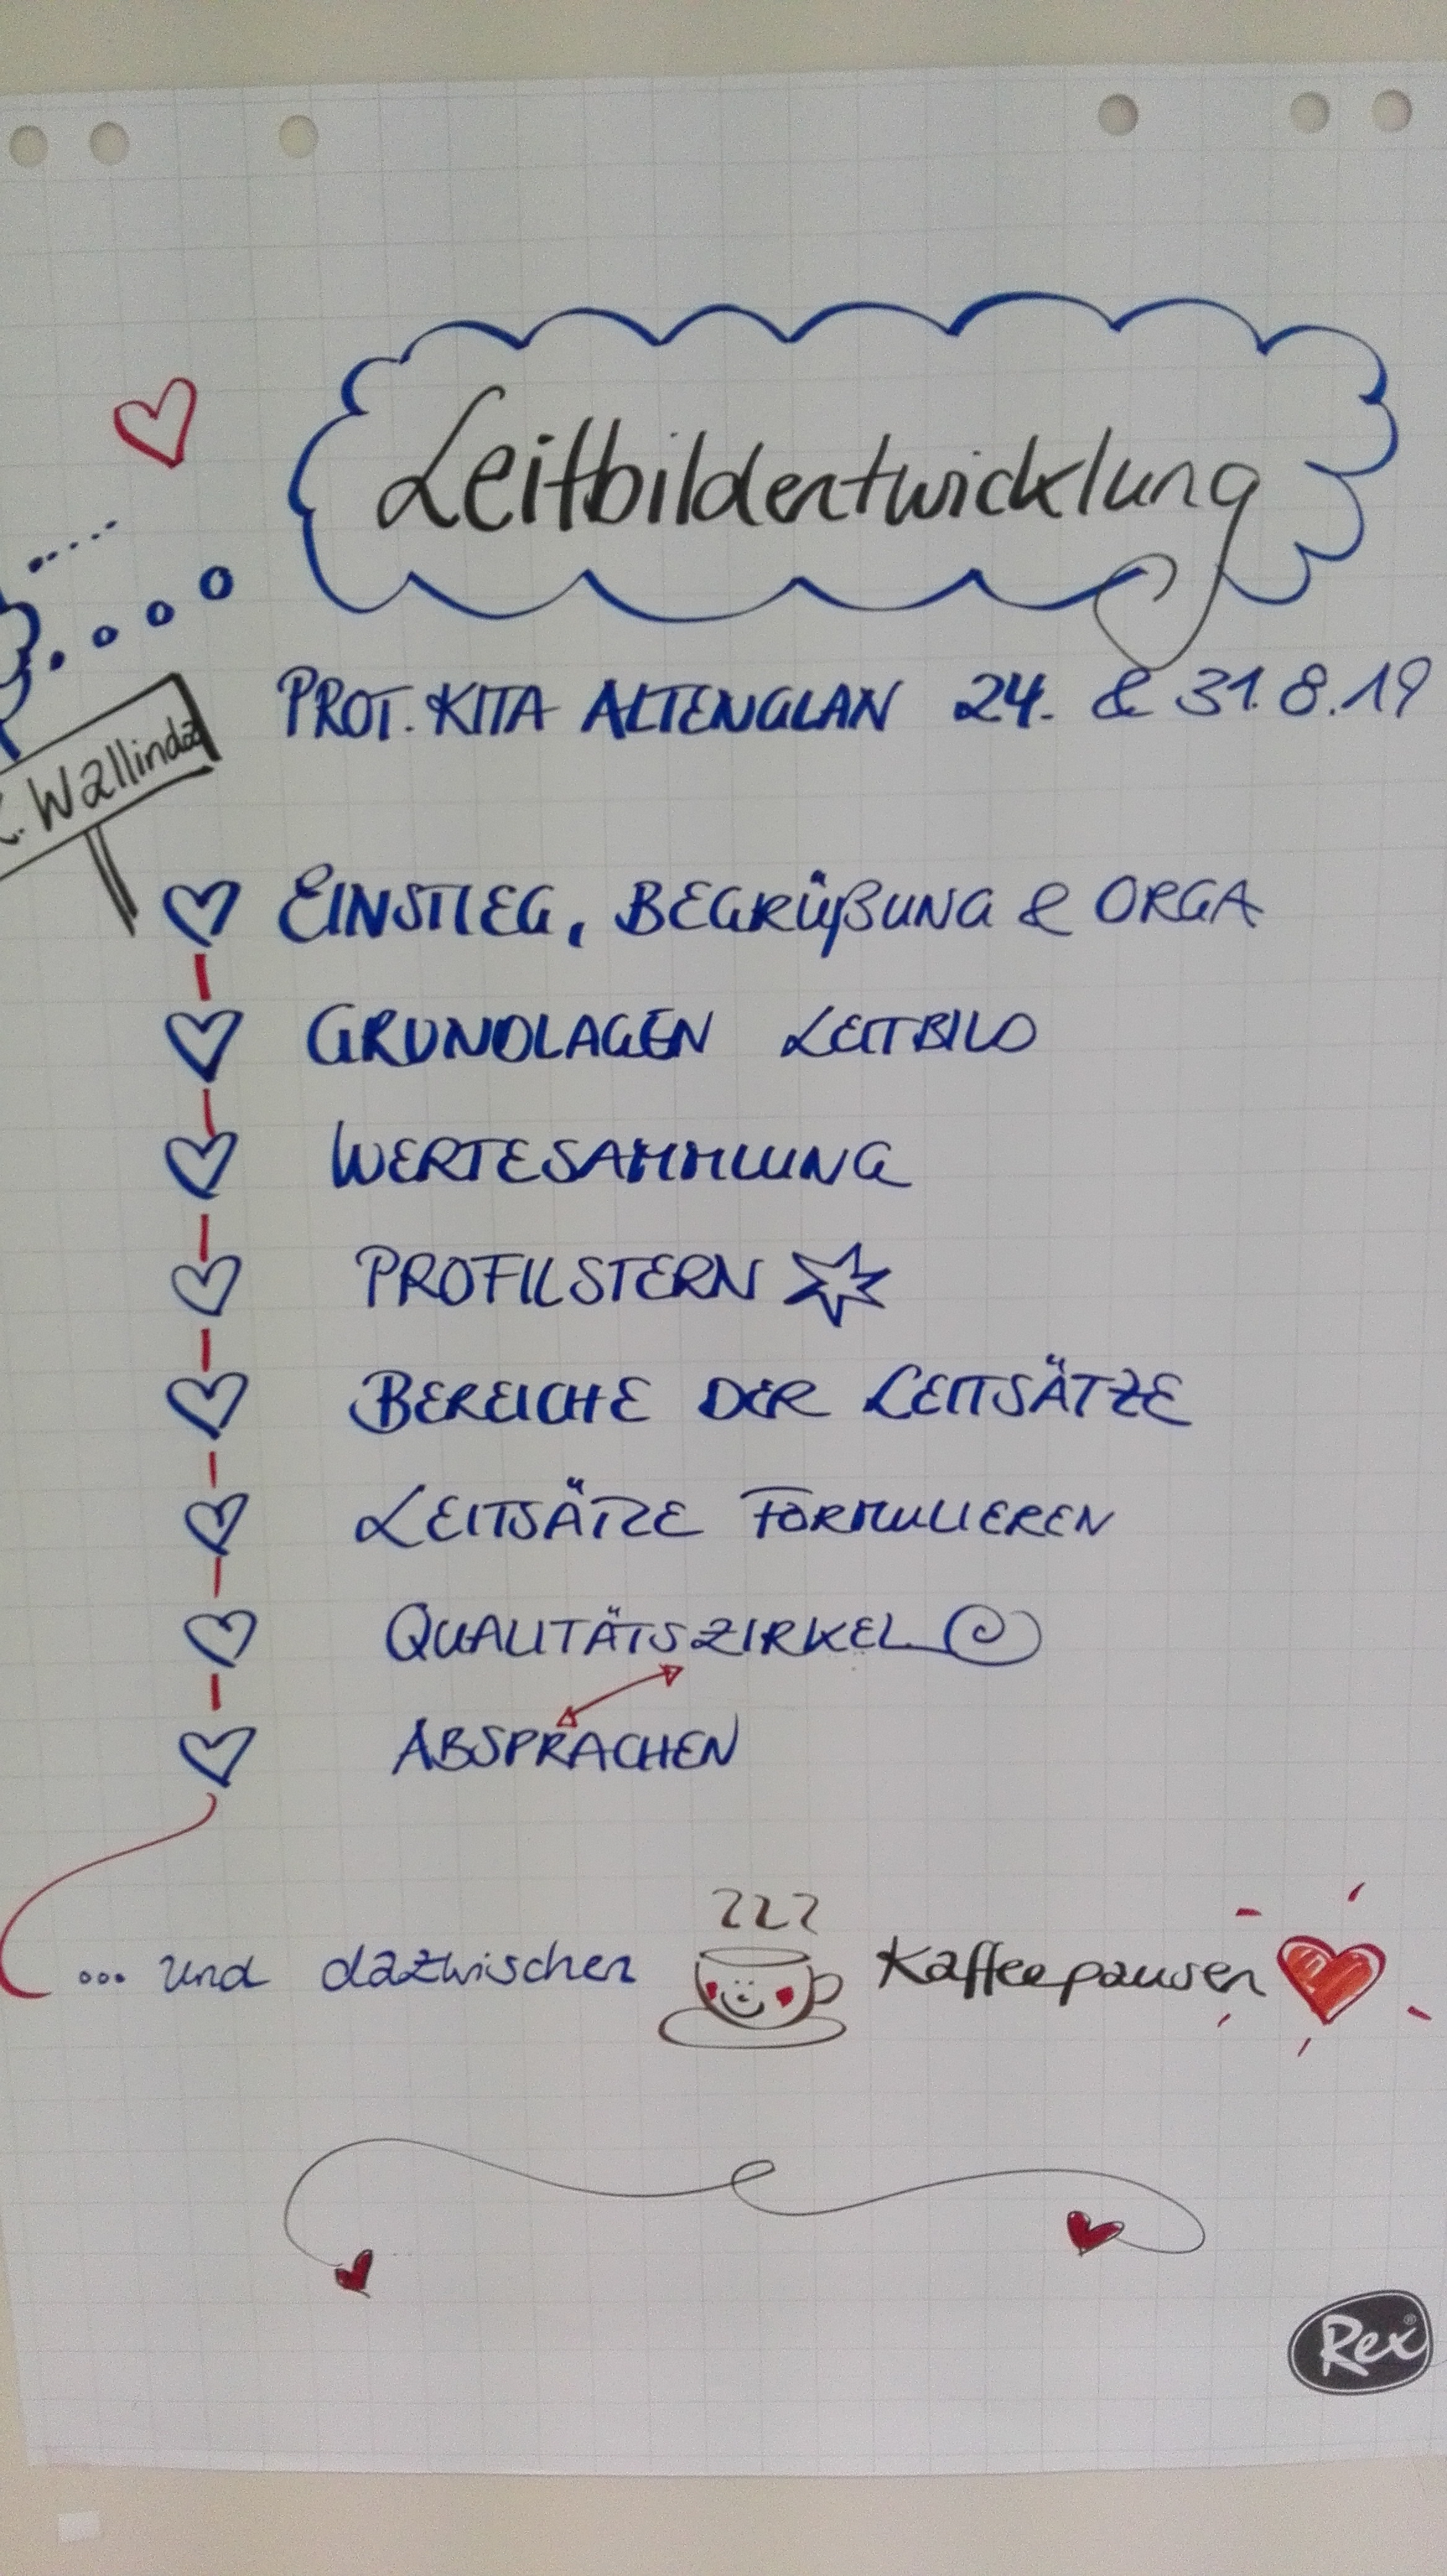 Leitbildentwicklung
PROT. KITA ALTENGLAN 24. & 31.8.19
Wallinda
EINSTIEG, BEGRÜßUNG & ORGA
GRUNDLAGEN LEITBILD
WERTESAMMLUNG
PROFILSTERN
BEREICHE DER LEITSÄTZE
LEITSÄTZE FORMULIEREN
QUALITÄTSZIRKEL
ABSPRACHEN
... und dazwischen Kaffeepausen
Rex®